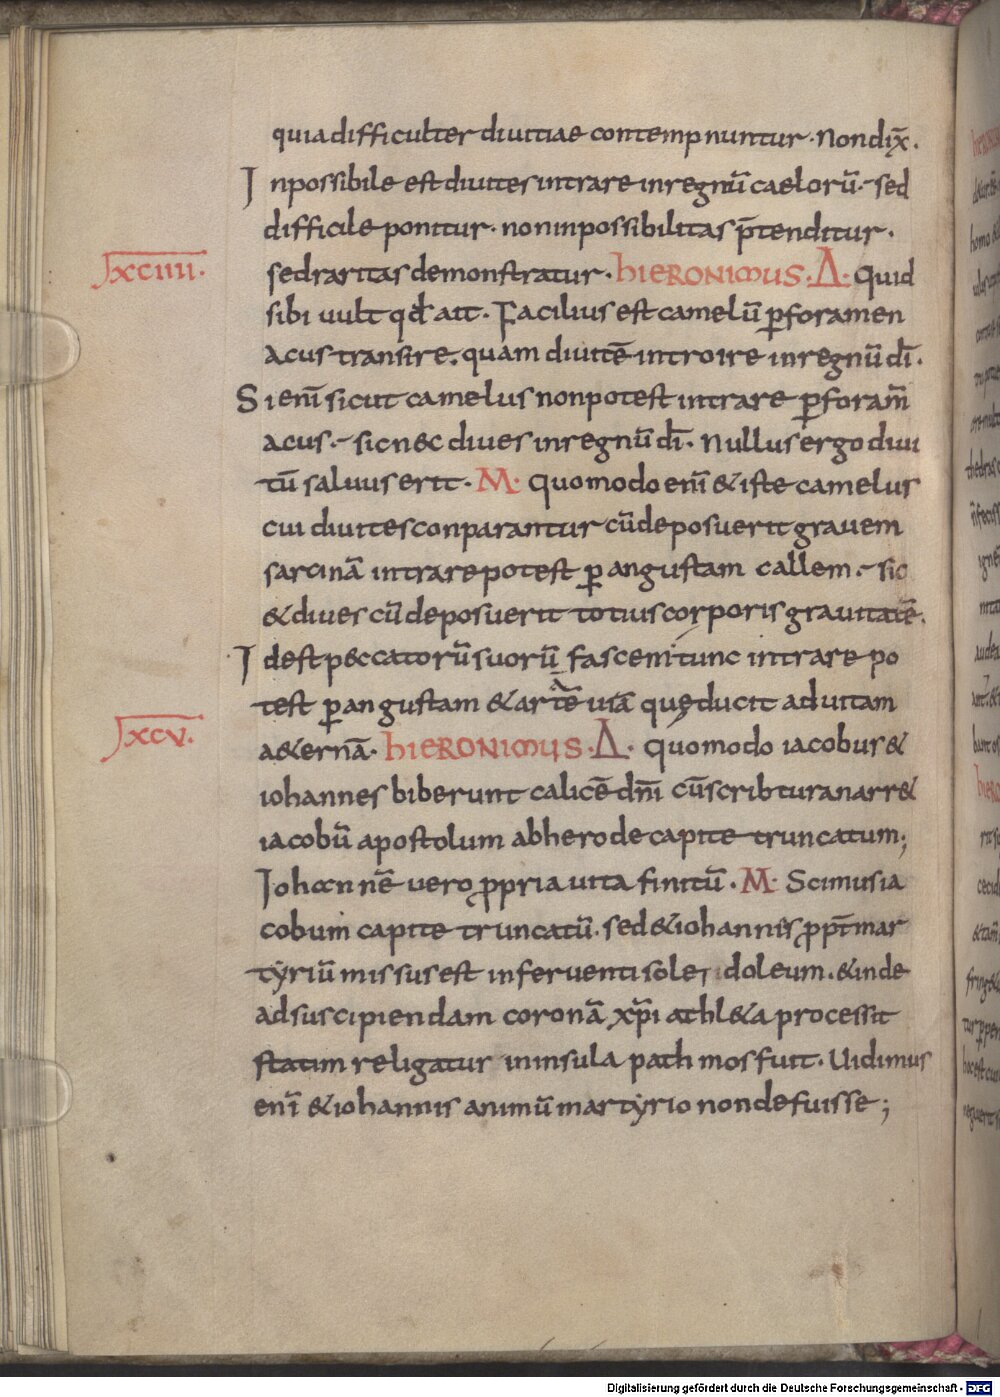 quia difficulter diuitiae contempnuntur · Non dix̄ ·
Inpossibile est diuites intrare in regnū caelorū ·- sed
difficile ponitur · non inpossibilitas p̄tenditur ·
xciiii · sed raritas demonstratur · hieronimus · Δ · Quid
sibi uult qđ ait · Facilius est camelū ꝑ foramen
acus transire · quam diuitē introire in regnū dī ·
Si enī sicut camelus non potest intrare ꝑ foram̄
acus ·- sic nec diues in regnū dī · Nullus ergo diui
tū saluus erit · M · Quomodo enī & iste camelus
cui diuites conparantur cū deposuerit grauem
sarcinā intrare potest ꝑ angustam callem ·- sic
& diues cū deposuerit totius corporis grauitatē ·
Id est peccatorū suorū fascem tunc intrare po
test ꝑ angustam & artē uiā quę ducit ad uitam
xcv · a&ernā · hieronimus · Δ · Quomodo iacobus &
iohannes biberunt calicē dn̄i cū scribtura narr&
iacobū apostolum ab herode capite truncatum ;
Iohannē uero ꝓpria uita finitū · M · Scimus ia
cobum capite truncatū · sed & iohannis ꝓpt̄ mar
tyriū missus est in feruentis olei doleum · & inde
ad suscipiendam coronā xp̄i athl&a processit
statim religatur in insula pathmos fuit · Uidimus
enī & iohannis animū martyrio non defuisse ;
Digitalisierung gefördert durch die Deutsche Forschungsgemeinschaft - DFG